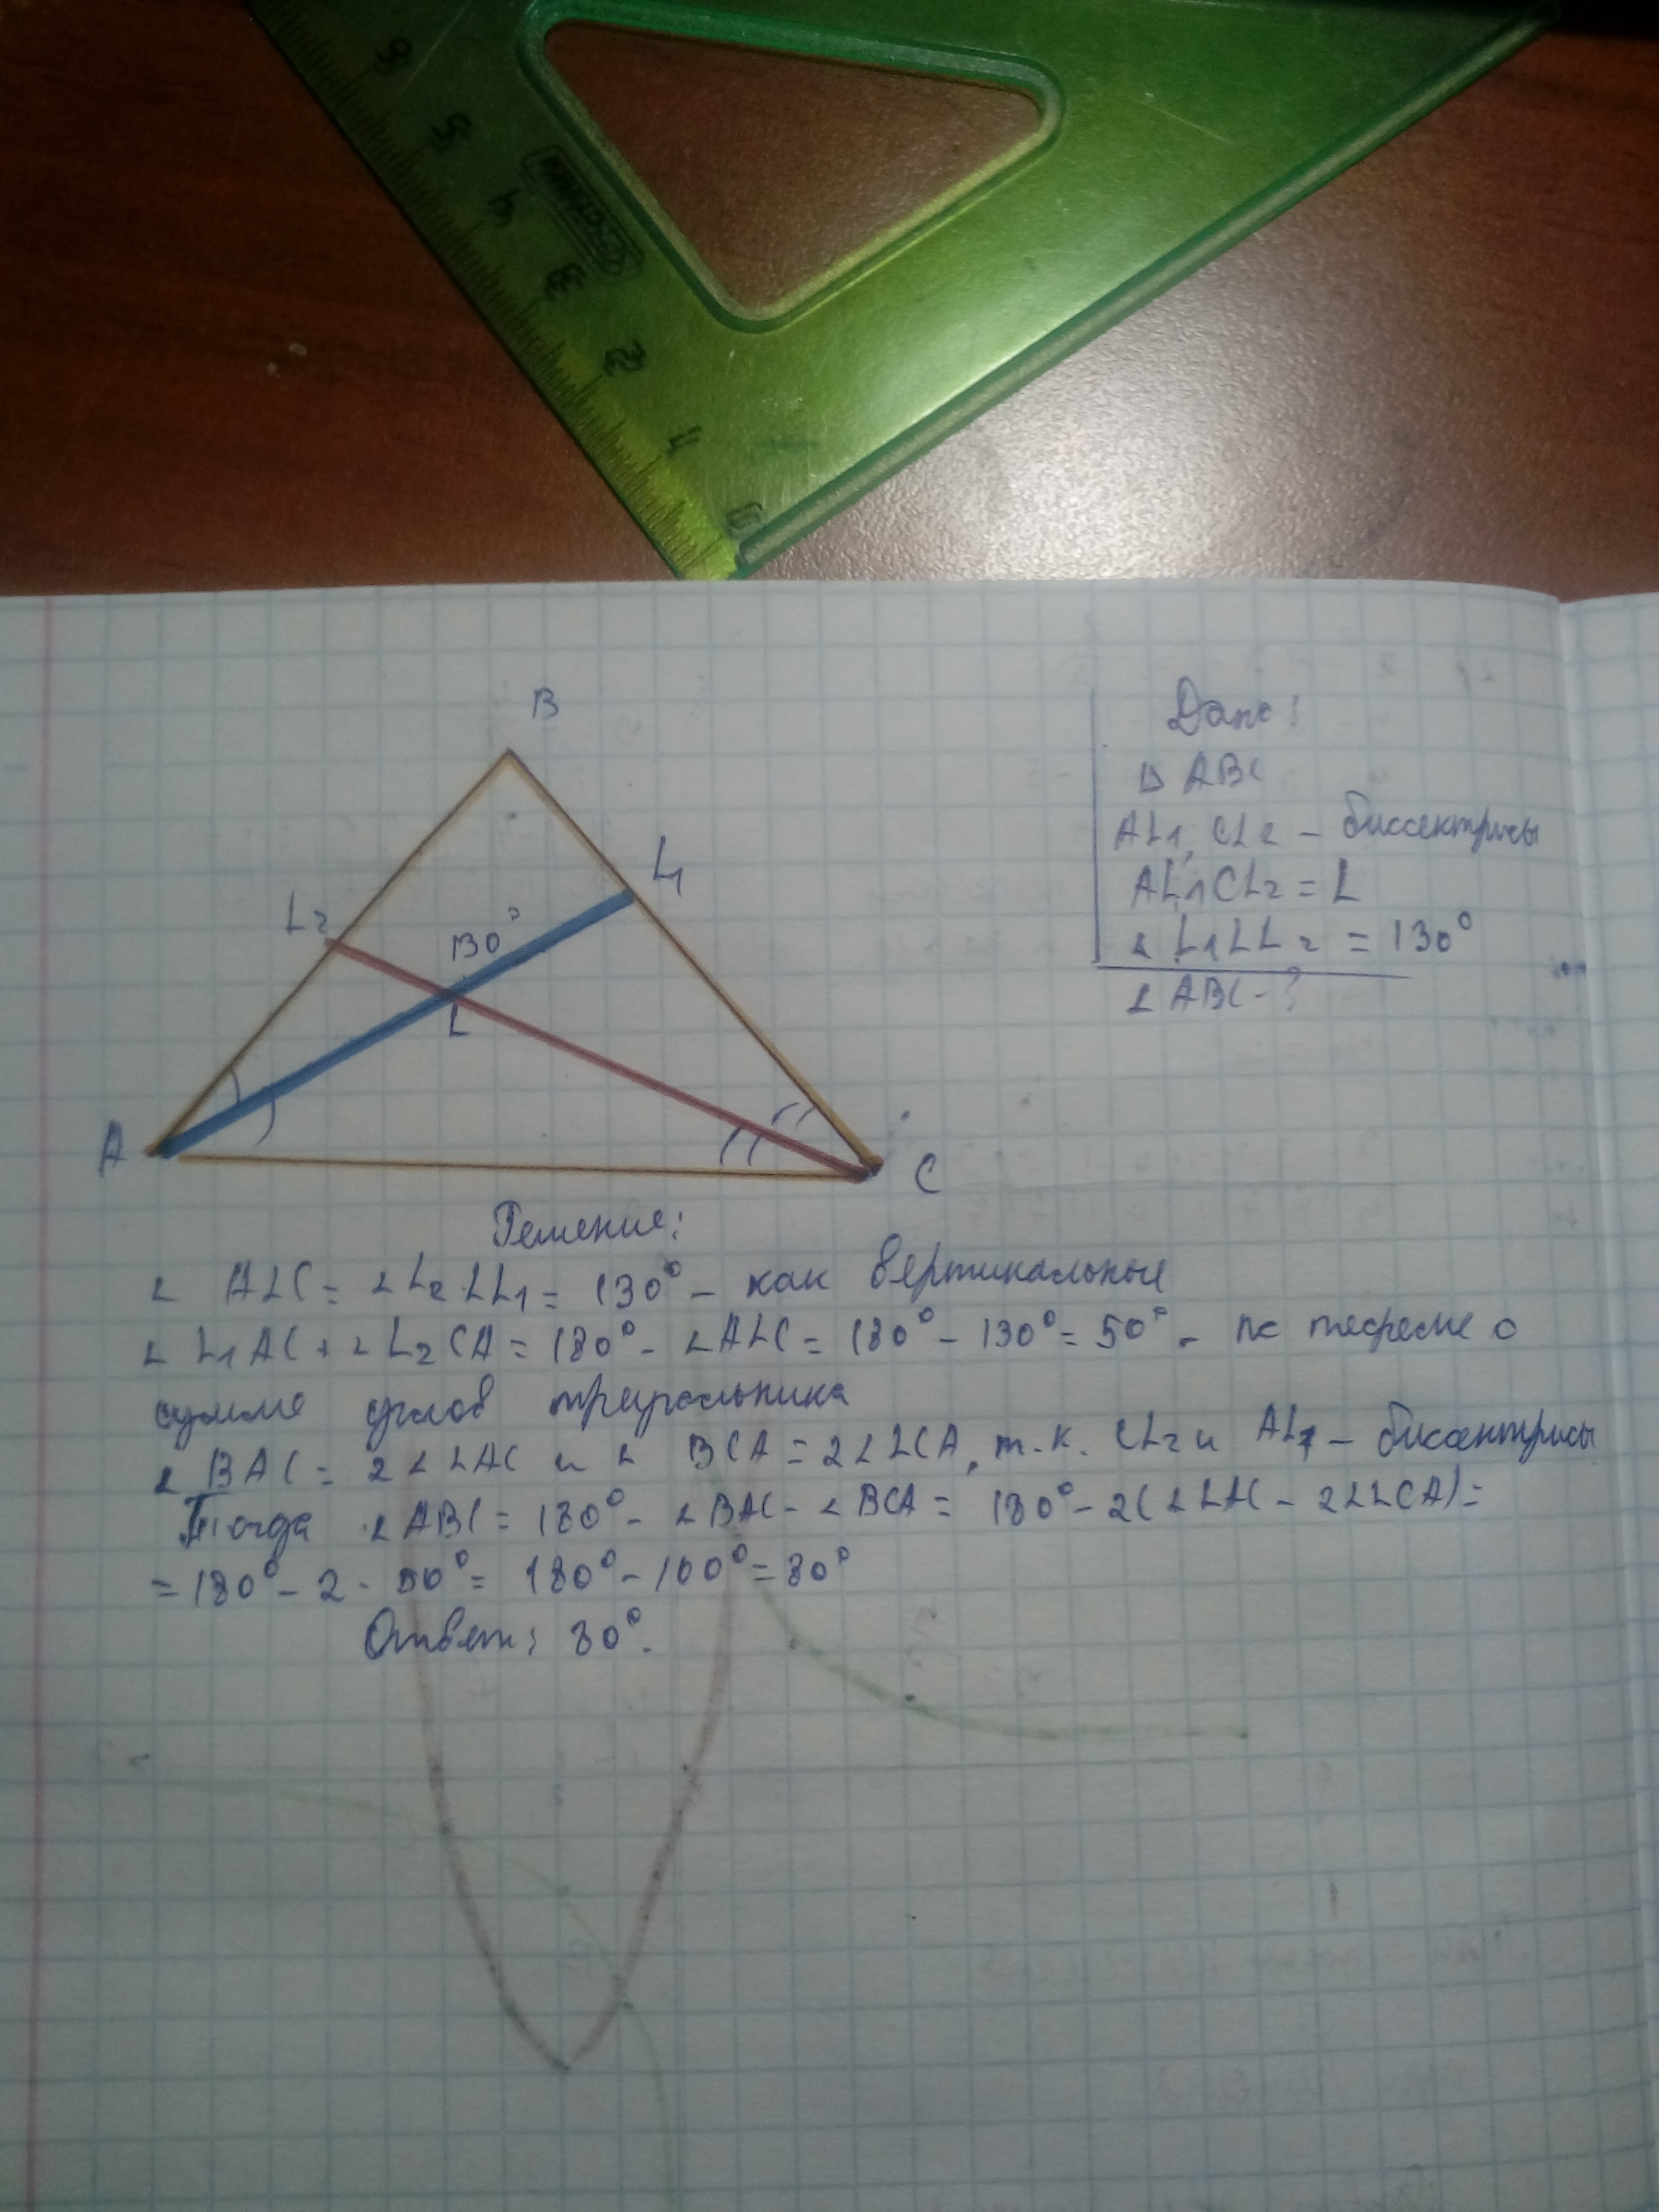 6
5
4
3
2
1
0
B
L1
L2
130°
L
A
C
Дано:
△ ABC
AL1, CL2 – биссектрисы
AL1 CL2 = L
∠ L1LL2 = 130°
∠ ABC - ?
Решение:
∠ ALC = ∠ L2LL1 = 130° – как вертикальные
∠ L1AC + ∠ L2CA = 180° - ∠ALC = 180° - 130° = 50° - по теореме о
сумме углов треугольника
∠ BAC = 2∠LAC и ∠ BCA = 2∠LCA, т.к. CL2 и AL1 – биссектрисы
Тогда ∠ABC = 180° - ∠BAC - ∠BCA = 180° - 2(∠LAC - 2∠LCA) =
= 180° - 2 · 50° = 180° - 100° = 80°
Ответ: 80°.